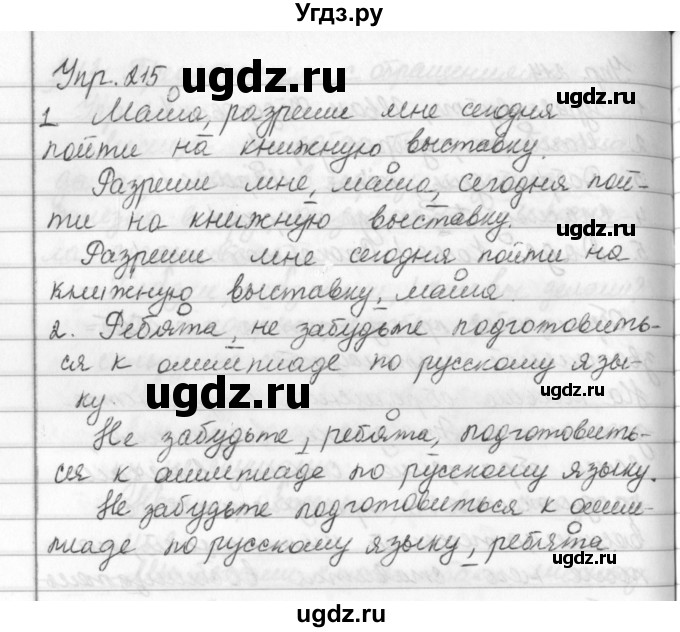 Угдз.ру
Упр. 215
ugdz.ru
ugdz.ru
1 Маша, разреши мне сегодня
ugdz.ru
пойти на книжную выставку.
Разреши мне, маша, сегодня пой-
ти на книжную выставку.
ugdz.ru
Разреши мне сегодня пойти на
книжную выставку, маша
2. Ребята, не забудьте подготовить-
ся к олимпиаде по русскому язы-
ugdz.ru
ugdz.ru
ку.
Не забудьте, ребята, подготовить-
ся к олимпиаде по русскому языку.
Не забудьте подготовиться к олим-
пиаде по русскому языку, ребята
ugdz.ru
ugdz.ru